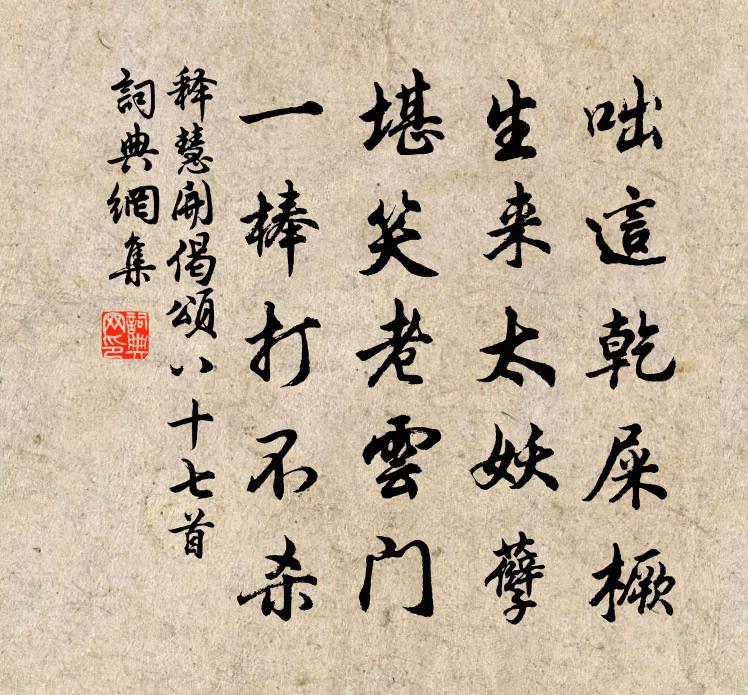 咄這乾屎橛
生来太妖孽
堪笑老雲門
一棒打不杀
释慧開偈頌八十七首
詞典網集
詞典网印